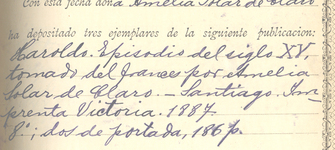 Con esta fecha doña Amelia Solar de Claro
ha depositado tres ejemplares de la siguiente publicacion:
Haroldo. Episodio del siglo XV,
tomado del frances por Amelia
Solar de Claro. – Santiago. Im-
prenta Victoria. 1887
8°; dos de portada, 186 p.